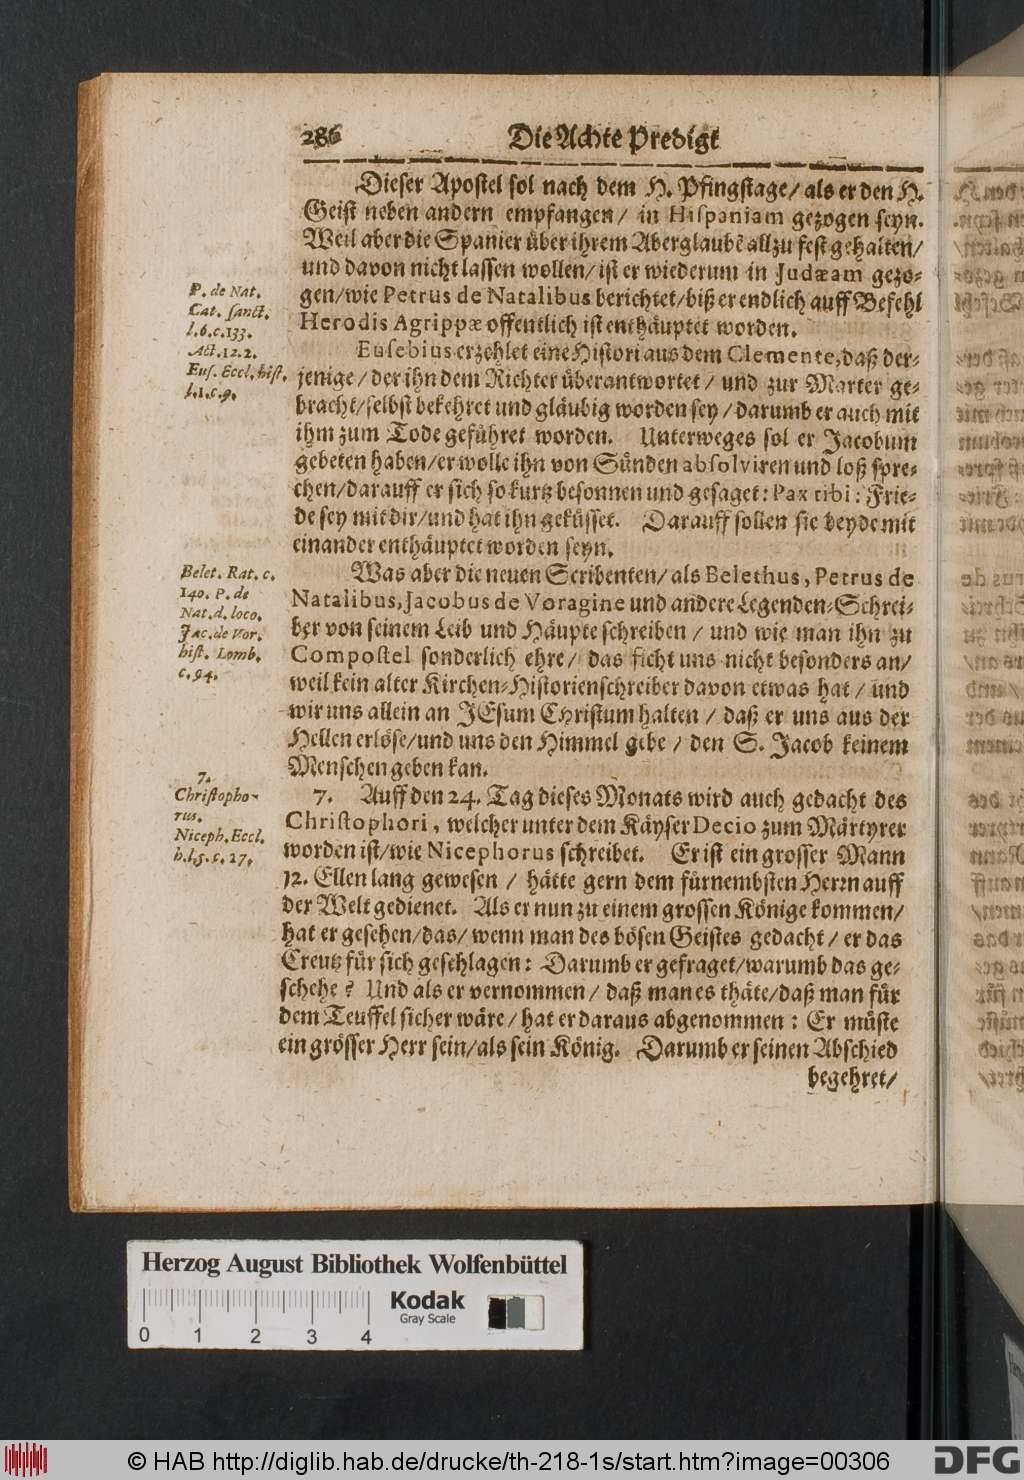 286 Die Achte Predigt
Dieser Apostel sol nach dem H. Pfingstage/ als er den H.
Geist neben andern empfangen/ in Hispaniam gezogen seyn.
Weil aber die Spanier über ihrem Aberglaubẽ allzu fest gehalten/
und davon nicht lassen wollen/ ist er wiederum in Judæam gezo-
gen/ wie Petrus de Natalibus berichtet/ biß er endlich auff Befehl
Herodis Agrippæ offentlich ist enthäuptet worden.
P. de Nat.
Cat. sanct.
l.6.c.133.
Act.12.2.
Eus. Eccl. hist.
l.1.c.9.
Eusebius erzehlet eine Histori aus dem Clemente, daß der-
jenige/ der ihn dem Richter überantwortet/ und zur Marter ge-
bracht/ selbst bekehret und gläubig worden sey/ darumb er auch mit
ihm zum Tode geführet worden. Unterweges sol er Jacobum
gebeten haben/ er wolle ihn von Sünden absolviren und loß spre-
chen/ darauff er sich so kurtz besonnen und gesaget: Pax tibi: Frie-
de sey mit dir/ und hat ihn geküsset. Darauff sollen sie beyde mit
einander enthäuptet worden seyn.
Was aber die neuen Scribenten/ als Belethus, Petrus de
Natalibus, Jacobus de Voragine und andere Legenden-Schrei-
ber von seinem Leib und Häupte schreiben/ und wie man ihn zu
Compostel sonderlich ehre/ das ficht uns nicht besonders an/
weil kein alter Kirchen-Historienschreiber davon etwas hat/ und
wir uns allein an JEsum CHristum halten/ daß er uns aus der
Hellen erlöse/ und uns den Himmel gebe/ den S. Jacob keinem
Menschen geben kan.
Belet. Rat. c.
140. P. de
Nat. d. loco.
Jac. de Vor.
hist. Lomb.
c.94.
7. Auff den 24. Tag dieses Monats wird auch gedacht des
Christophori, welcher unter dem Käyser Decio zum Märtyrer
worden ist/ wie Nicephorus schreibet. Er ist ein grosser Mann
12. Ellen lang gewesen/ hätte gern dem fürnembsten Herrn auff
der Welt gedienet. Als er nun zu einem grossen Könige kommen/
hat er gesehen/ das/ wenn man des bösen Geistes gedacht/ er das
Creutz für sich geschlagen: Darumb er gefraget/ warumb das ge-
schehe? Und als er vernommen/ daß man es thäte/ daß man für
dem Teuffel sicher wäre/ hat er daraus abgenommen: Er müste
ein grösser Herr sein/ als sein König. Darumb er seinen Abschied
begehret/
7.
Christopho-
rus.
Niceph. Eccl.
h.l.5.c.27.
Herzog August Bibliothek Wolfenbüttel
Kodak
Gray Scale
0 1 2 3 4
© HAB http://diglib.hab.de/drucke/th-218-1s/start.htm?image=00306
DFG